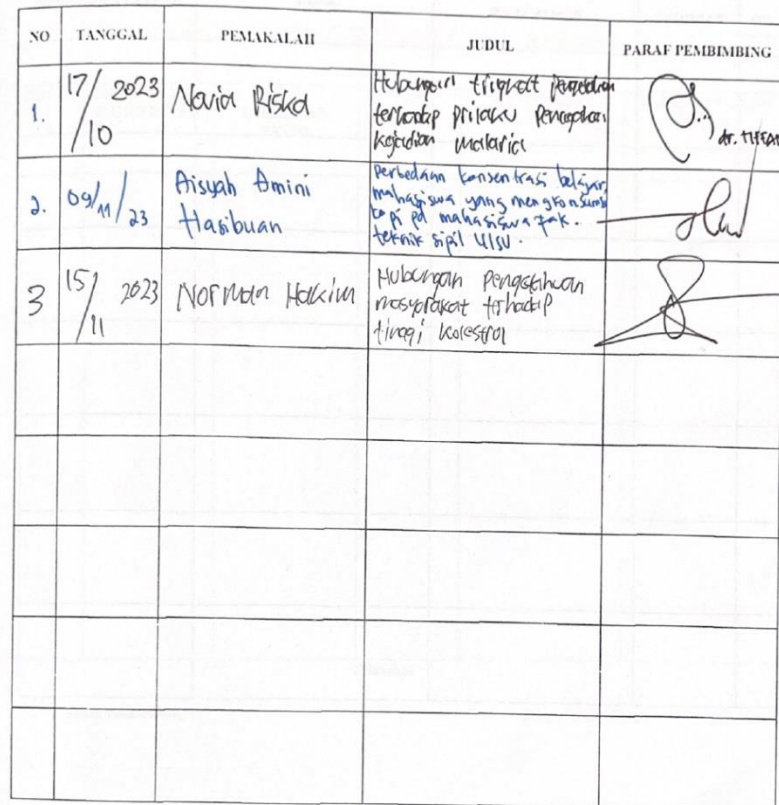 NO TANGGAL PEMAKALAH JUDUL PARAF PEMBIMBING
1. 17/10 2023 Novia Riska
Hubungan tingkat pengetahuan
terhadap prilaku Pencegahan
kejadian malaria
2. 09/11/23 Aisyah Amini
Hasibuan
Perbedaan konsentrasi belajar
mahasiswa yang mengkonsumsi
kopi pd mahasiswa fak.
teknik sipil UISU.
3 15/11 2023 Norman Hakim
Hubungan Pengetahuan
masyarakat terhadap
tinggi kolestrol